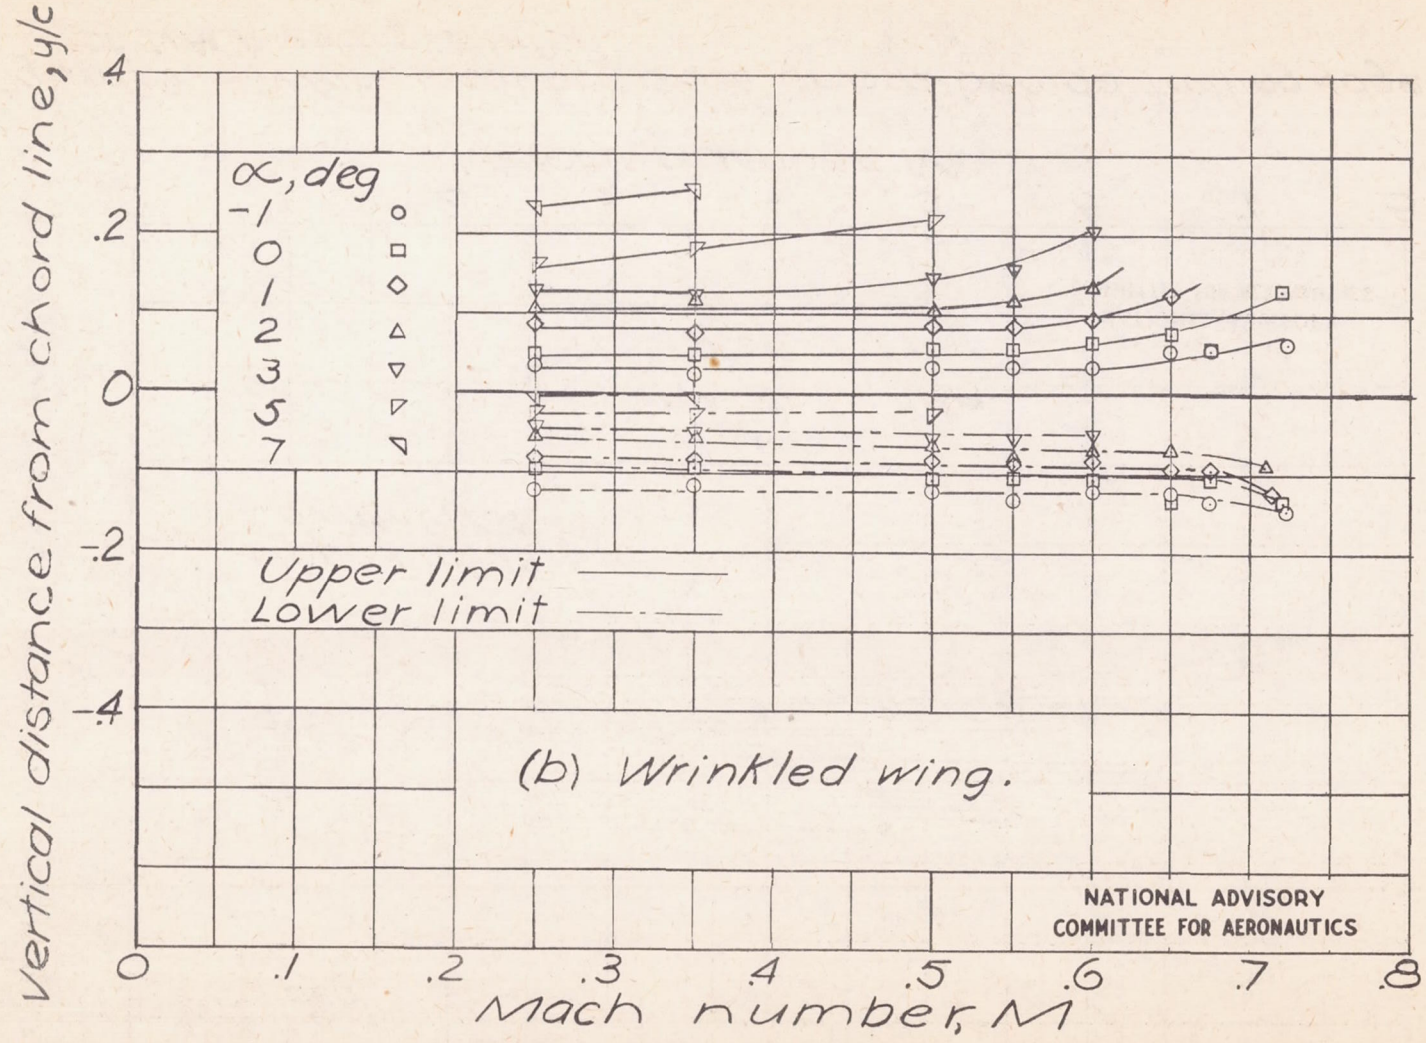 Vertical distance from chord line, y/c
.4
.2
0
-.2
-.4
α, deg
-1
0
1
2
3
5
7
Upper limit
Lower limit
(b) Wrinkled wing.
NATIONAL ADVISORY
COMMITTEE FOR AERONAUTICS
0 .1 .2 .3 .4 .5 .6 .7 .8
Mach number, M